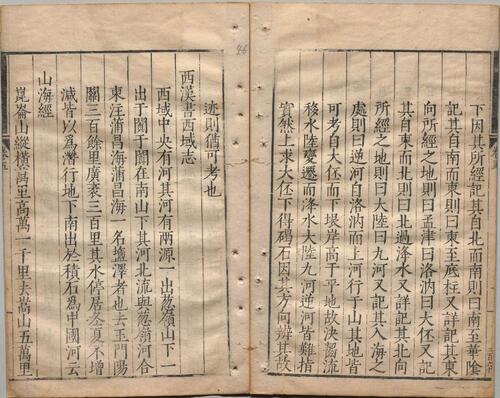 下因其所經記其自北而南則曰南至華陰
記其自南而東則曰東至底柱又詳記其東
向所經之地則曰孟津曰洛汭曰大伾又記
其自東而北則曰北過洚水又詳記其北向
所經之地則曰大陸曰九河又記其入海之
處則曰逆河自洛汭而上河行于山其地皆
可考自大伾而下垠岸高于平地故決齧流
移水陸變遷而洚水大陸九河逆河皆難指
實然上求大伾下得碣石因其方向辨其故
迹則猶可考也
西漢書西域志
西域中央有河其河有兩源一出葱嶺山下一
出于闐于闐在南山下其河北流與葱嶺河合
東注蒲昌海蒲昌海一名鹽澤者也去玉門陽
關三百餘里廣袤三百里其水停居冬夏不增
減皆以為潛行地下南出於積石為中國河云
山海經
崑崙山縱橫萬里高萬一千里去嵩山五萬里